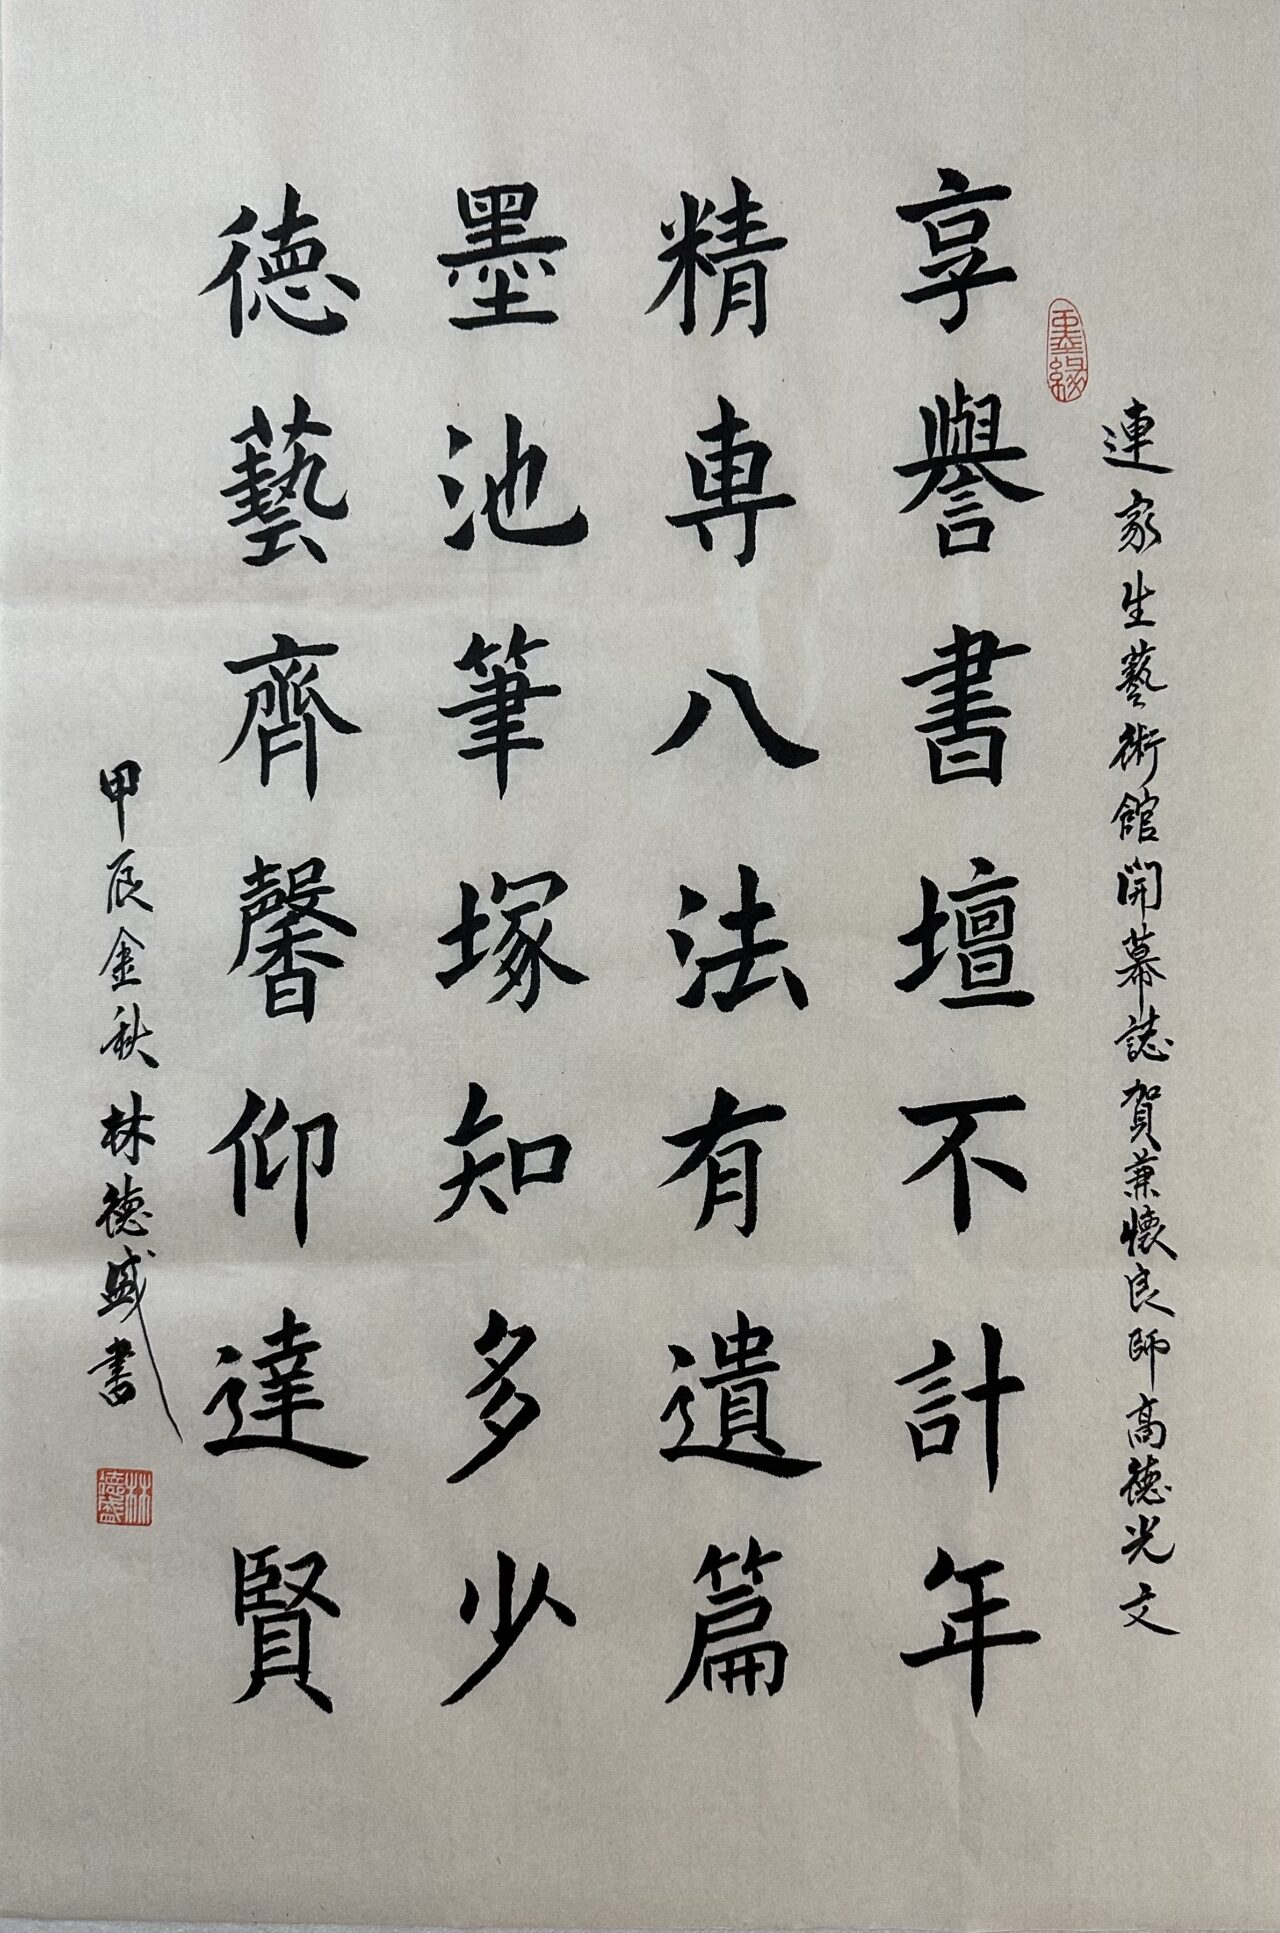 連家生藝術館開幕誌賀兼懷良師高德光文
墨緣
享譽書壇不計年
精專八法有遺篇
墨池筆塚知多少
德藝齊馨仰達賢
甲辰金秋林德盛書
林德盛